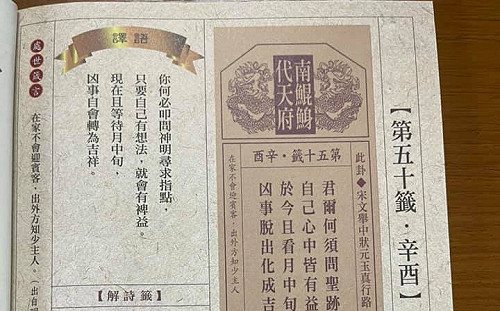 【第五十籤．辛酉】
南鯤鯓
代天府
第五十籤．辛酉
此卦◆宋文舉中狀元玉真行路
君爾何須問聖跡
自己心中皆有益
於今且看月中旬
凶事脫出化成吉
在家不會迎賓客．出外方知少主人
譯語
你何必叩問神明尋求指點，
只要自己有想法，就會有裨益。
現在且等待月中旬，
凶事自會轉為吉祥。
【解詩籤】
處世箴言
在家不會迎賓客，出外方知少主人。